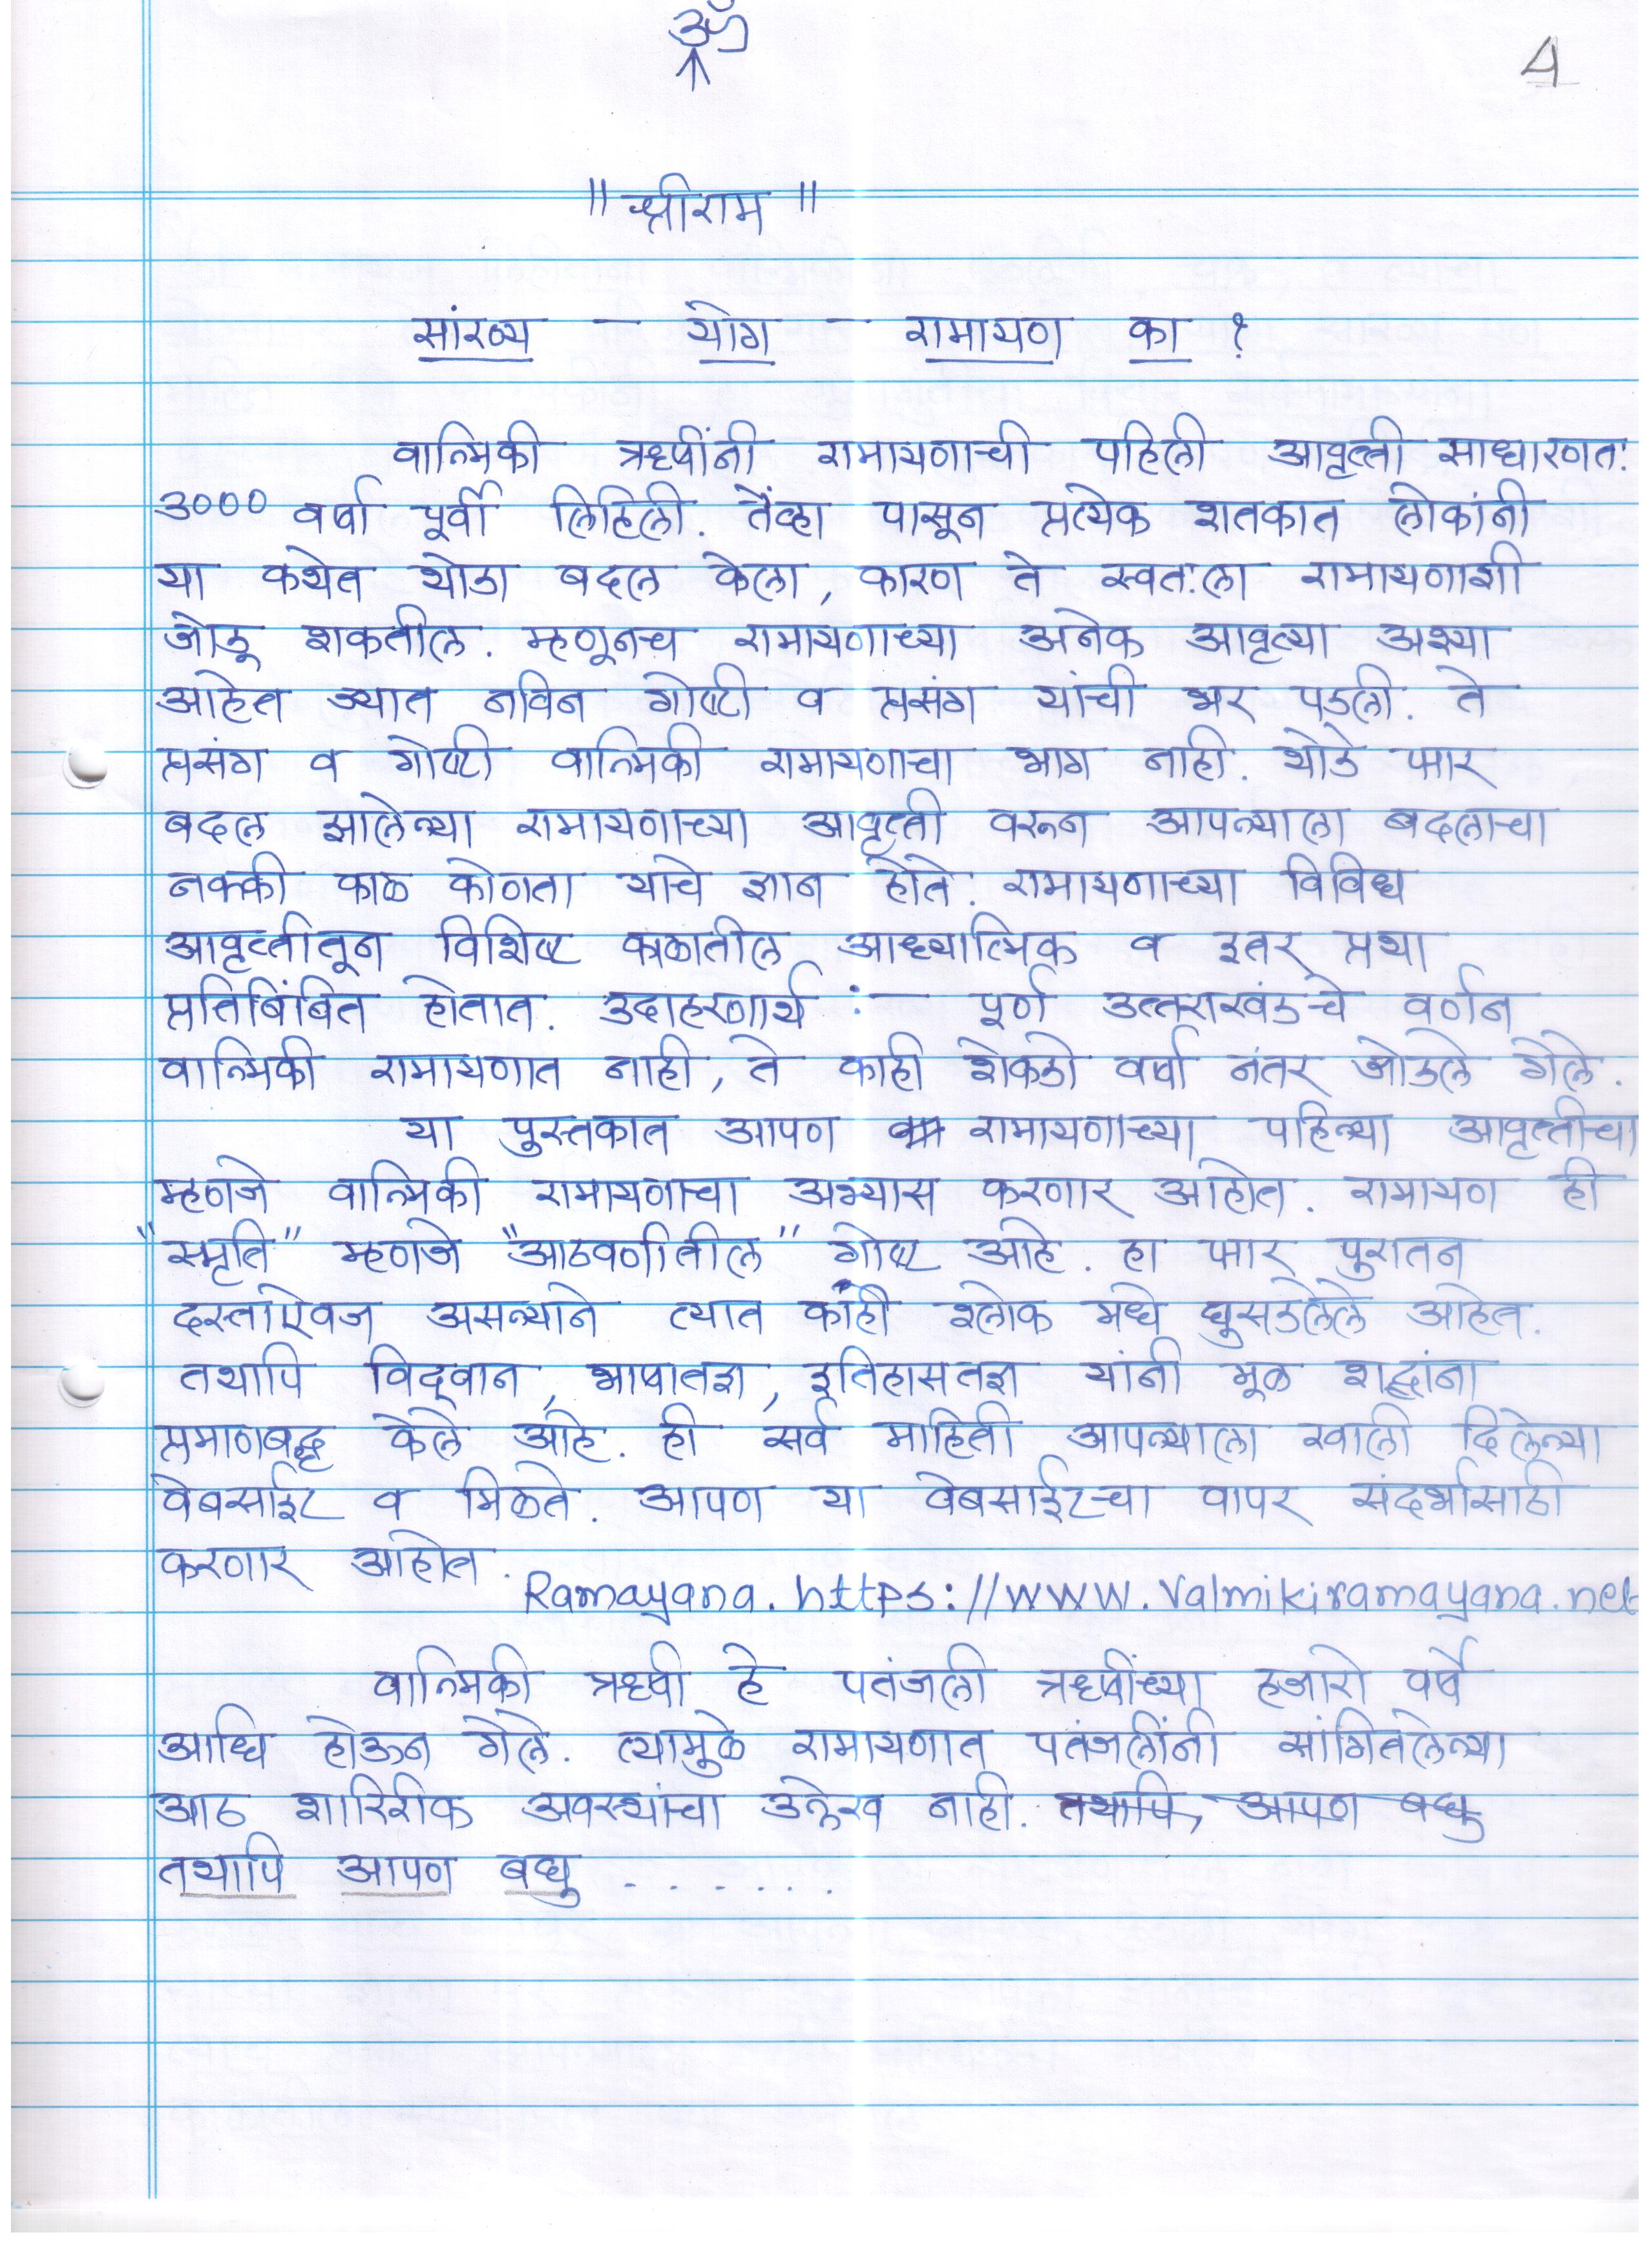 ॐ
4
" श्रीराम "
सांख्य - योग - रामायण का ?
वाल्मिकी ऋषींनी रामायणाची पहिली आवृत्ती साधारणत:
३००० वर्षा पूर्वी लिहिली. तेंव्हा पासून प्रत्येक शतकात लोकांनी
या कथेत थोडा बदल केला, कारण ते स्वत:ला रामायणाशी
जोडू शकतील. म्हणूनच रामायणाच्या अनेक आवृत्या अश्या
आहेत ज्यात नविन गोष्टी व प्रसंग यांची भर पडली. ते
प्रसंग व गोष्टी वाल्मिकी रामायणाचा भाग नाही. थोडे फार
बदल झालेल्या रामायणाच्या आवृत्ती वरून आपल्याला बदलाचा
नक्की काळ कोणता याचे ज्ञान होते. रामायणाच्या विविध
आवृत्तीतून विशिष्ट काळातील आध्यात्मिक व इतर प्रथा
प्रतिबिंबित होतात. उदाहरणार्थ :- पूर्ण उत्तराखंडचे वर्णन
वाल्मिकी रामायणात नाही, ते काही शेकडो वर्षा नंतर जोडले गेले.
या पुस्तकात आपण रामायणाच्या पहिल्या आवृत्तीचा
म्हणजे वाल्मिकी रामायणाचा अभ्यास करणार आहोत. रामायण ही
"स्मृति" म्हणजे "आठवणीतील" गोष्ट आहे. हा फार पुरातन
दस्ताऐवज असल्याने त्यात कांही श्लोक मधे घुसडलेले आहेत.
तथापि विद्वान, भाषातज्ञ, इतिहासतज्ञ यांनी मूळ शब्दांना
प्रमाणबद्ध केले आहे. ही सर्व माहिती आपल्याला खाली दिलेल्या
वेबसाईट व मिळते. आपण या वेबसाईटचा वापर संदर्भासाठी
करणार आहोत.
Ramayana. https://www.valmikiramayana.net
वाल्मिकी ऋषी हे पतंजली ऋषींच्या हजारो वर्षे
आधि होऊन गेले. त्यामुळे रामायणात पतंजलींनी सांगितलेल्या
आठ शारिरीक अवस्थांचा उल्लेख नाही. तथापि, आपण बघु
तथापि आपण बघु . . . . . .